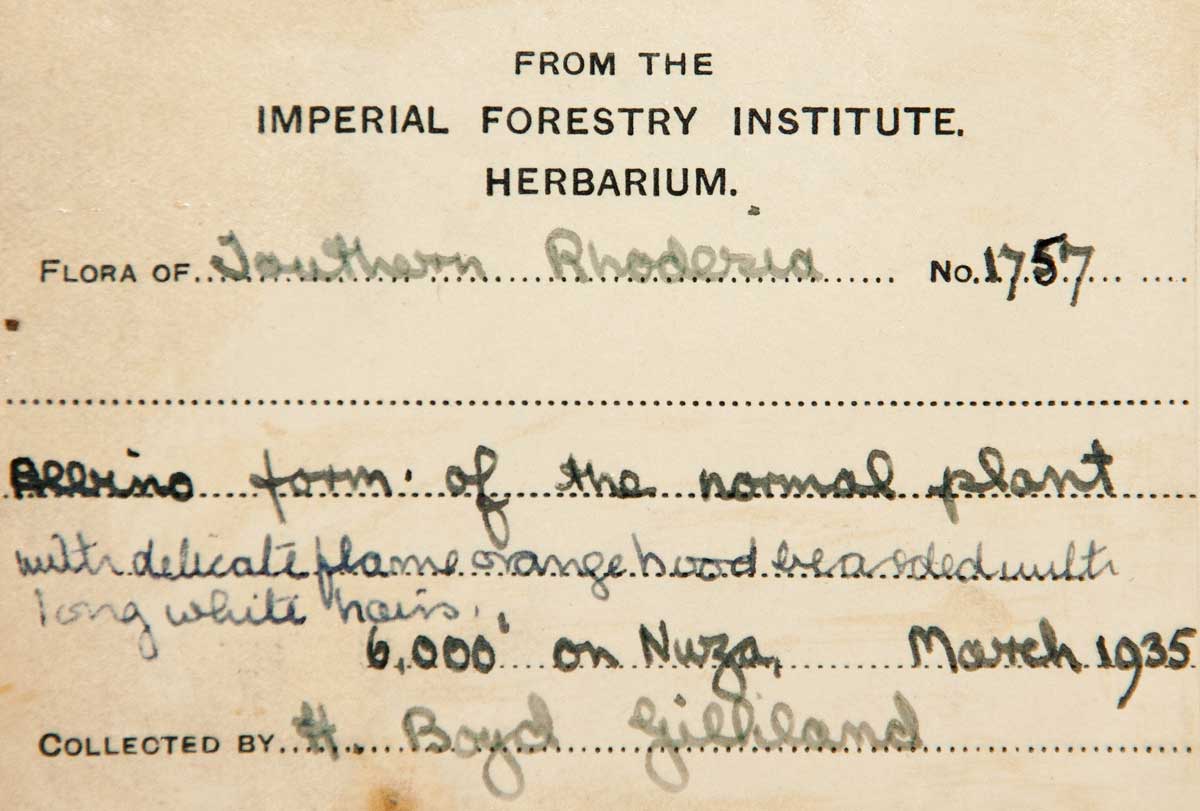 FROM THE
IMPERIAL FORESTRY INSTITUTE.
HERBARIUM.
FLORA OF Southern Rhodesia No. 1757
Albino form of the normal plant
with delicate flame orange hood bearded with
long white hairs.
6,000' on Nuza, March 1935
COLLECTED BY H. Boyd Gilliland